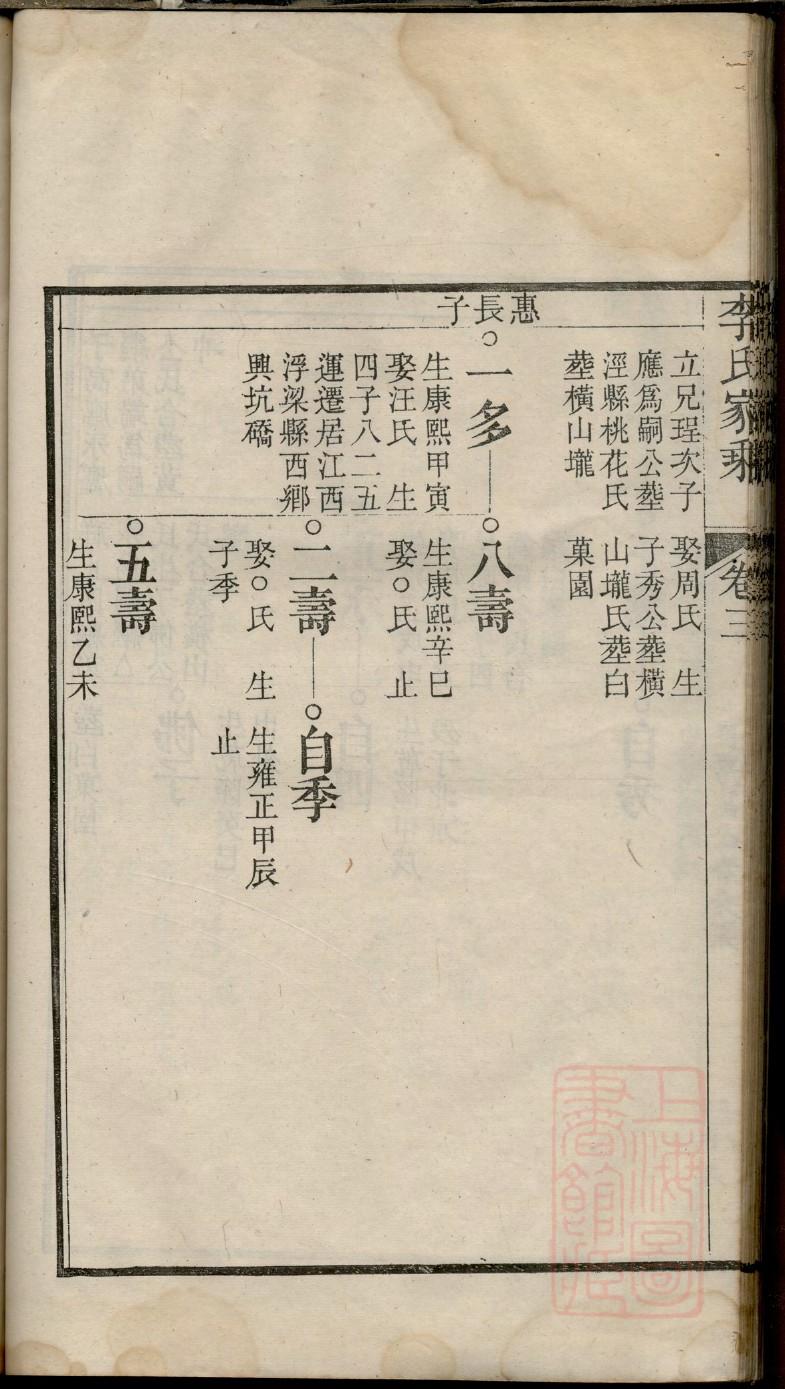 李氏家乘
卷三
立兄珵次子
應爲嗣公塟
涇縣桃花氏
塟橫山壠
娶周氏 生
子秀公塟橫
山壠氏塟白
菓園
惠長子
一多
生康熙甲寅
娶汪氏 生
四子八二五
運遷居江西
浮梁縣西鄉
興坑磻
八壽
生康熙辛巳
娶○氏 止
二壽
娶○氏 生
子季
自季
生雍正甲辰
止
五壽
生康熙乙未
上海圖
書館藏